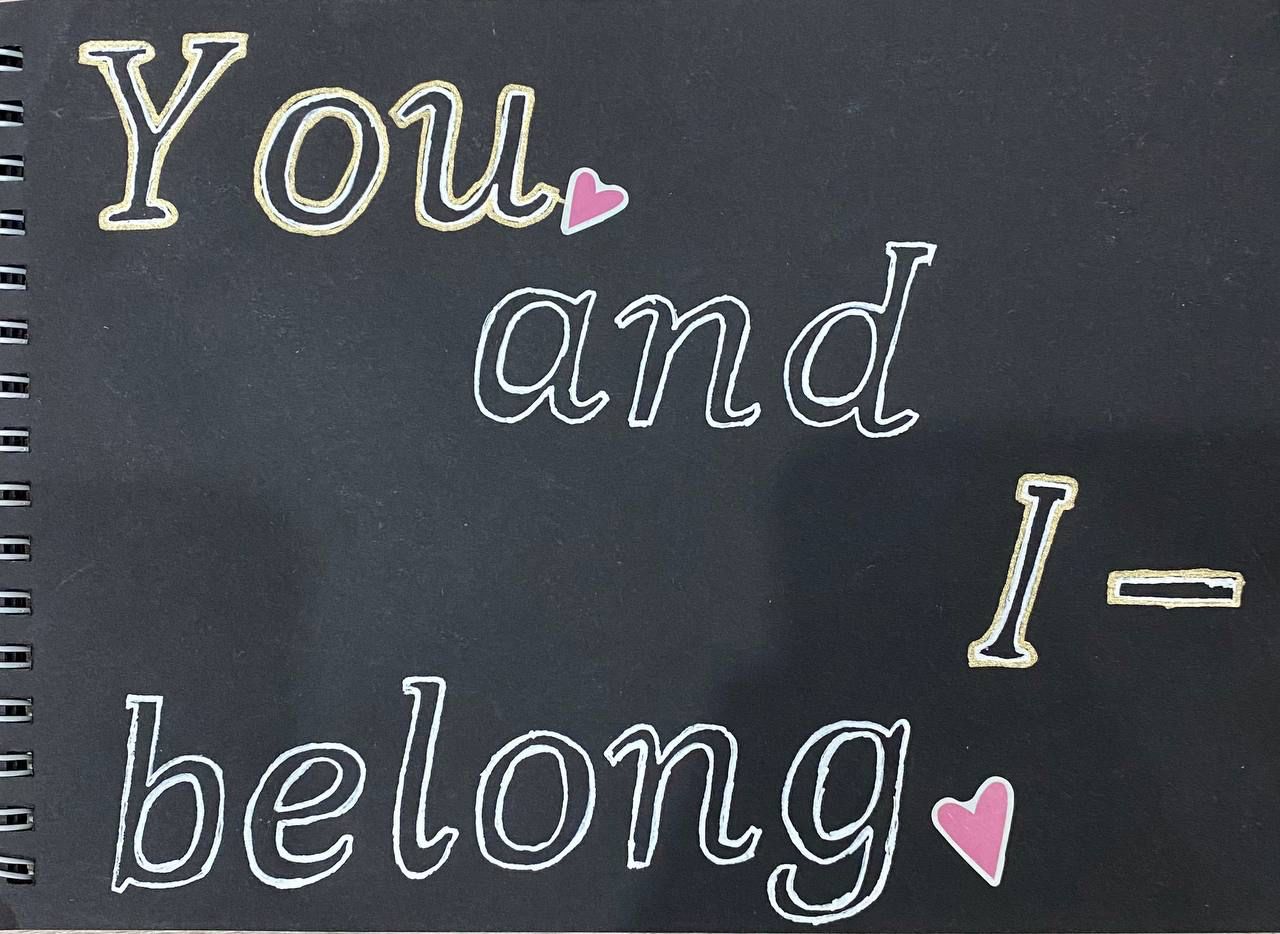 You
and
I-
belong